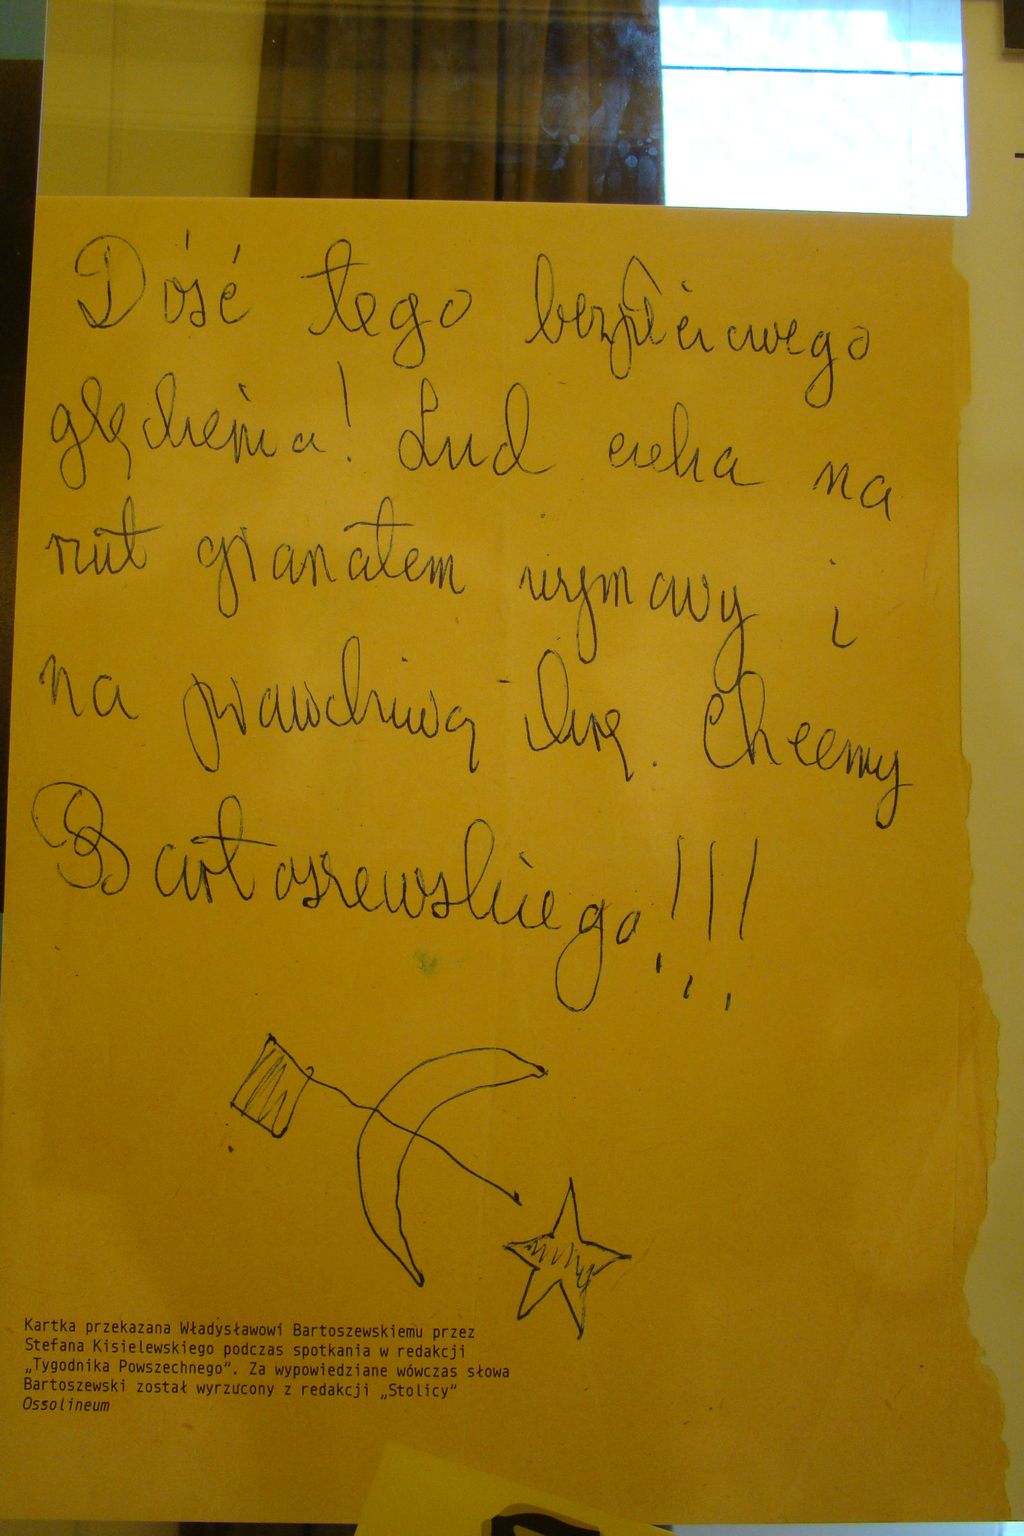 Dość tego bezpłciowego
ględzenia! Lud czeka na
rzut granatem wymowy i
na prawdziwą iskrę. Chcemy
Bartoszewskiego!!!
Kartka przekazana Władysławowi Bartoszewskiemu przez
Stefana Kisielewskiego podczas spotkania w redakcji
„Tygodnika Powszechnego“. Za wypowiedziane wówczas słowa
Bartoszewski został wyrzucony z redakcji „Stolicy“
Ossolineum